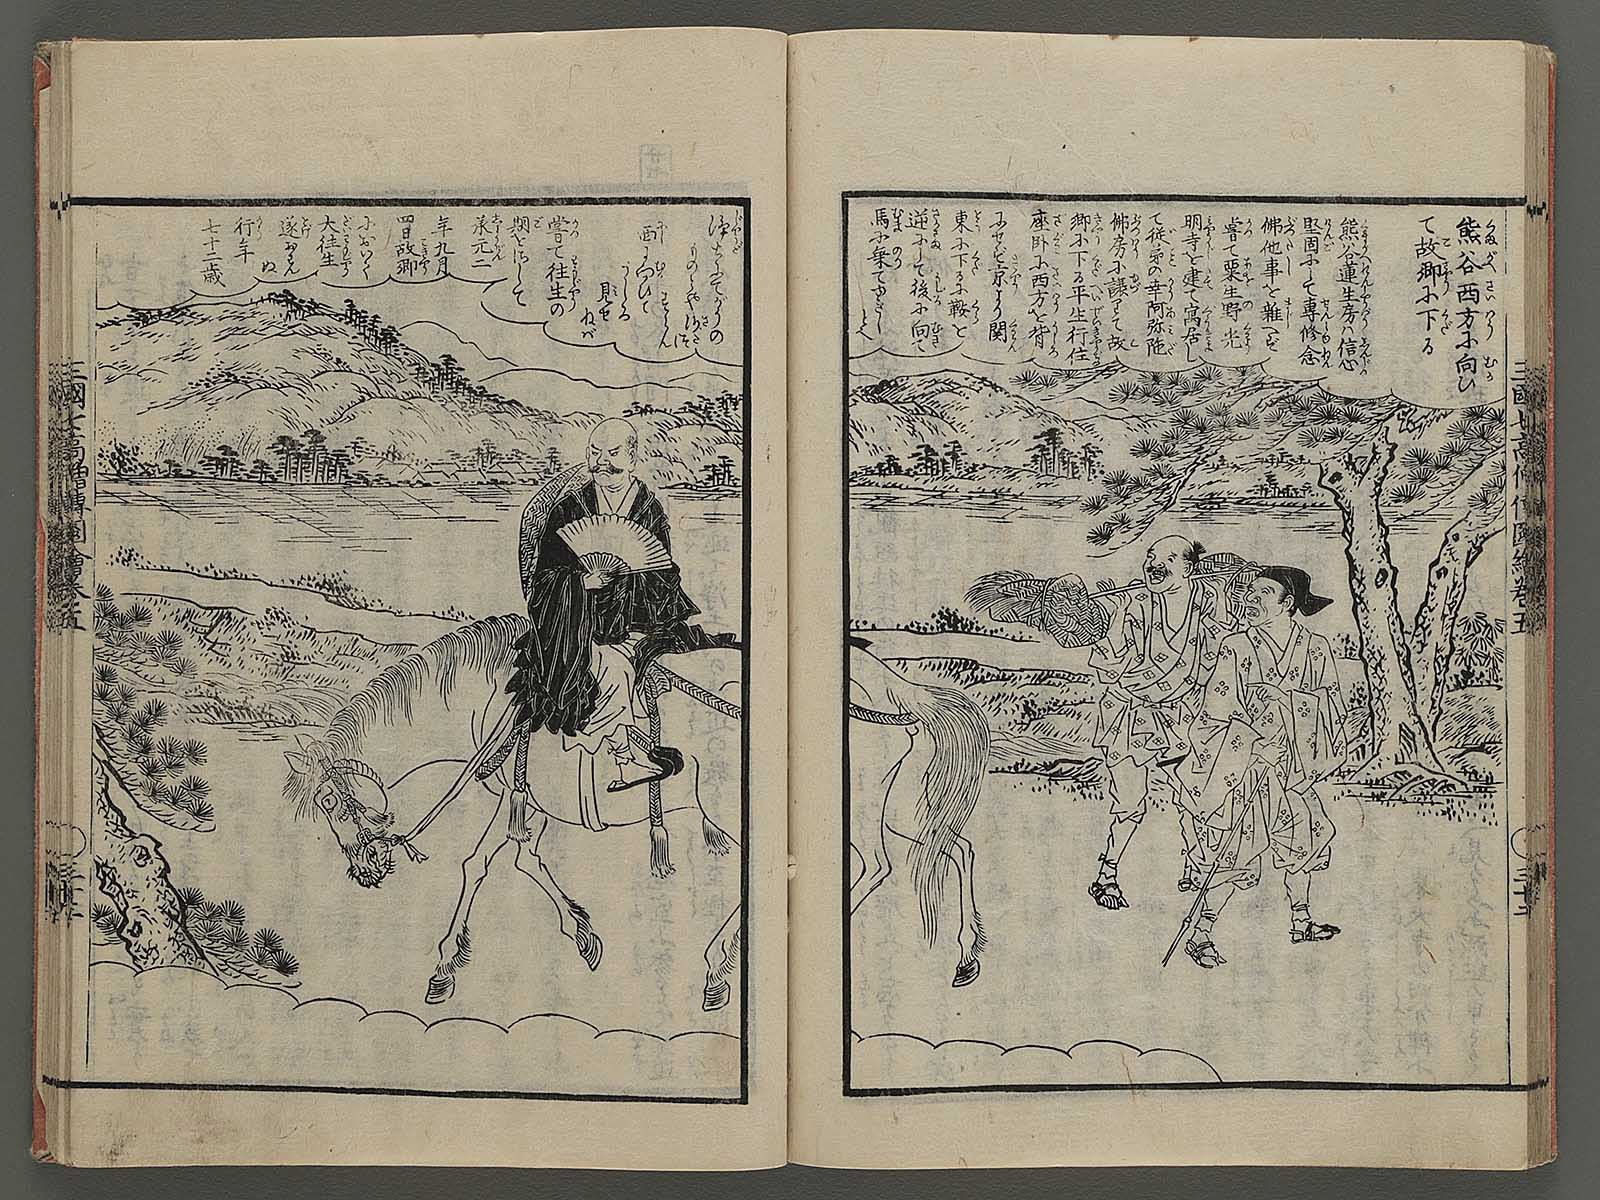 熊谷西方に向ひ
て故郷に下る
熊谷蓮生房ハ信心
堅固にして専修念
佛他事を雑へず
嘗て粟生野光
明寺を建て寓居し
て従弟の幸阿弥陀
佛房に譲りて故
郷に下る平生行住
座臥に西方を背
にせず京より関
東に下るに鞍を
逆にして後に向て
馬に乗てぞさし
浄土にもがうのものとや沙汰すらん
西にむかひて
うしろ
見せねバ
嘗て往生の
期をしるして
承元二
年九月
四日故郷
において
大往生
遂られ
ぬ
行年
七十三歳
三國七高僧傳圖會卷五
三國七高僧傳圖會卷五